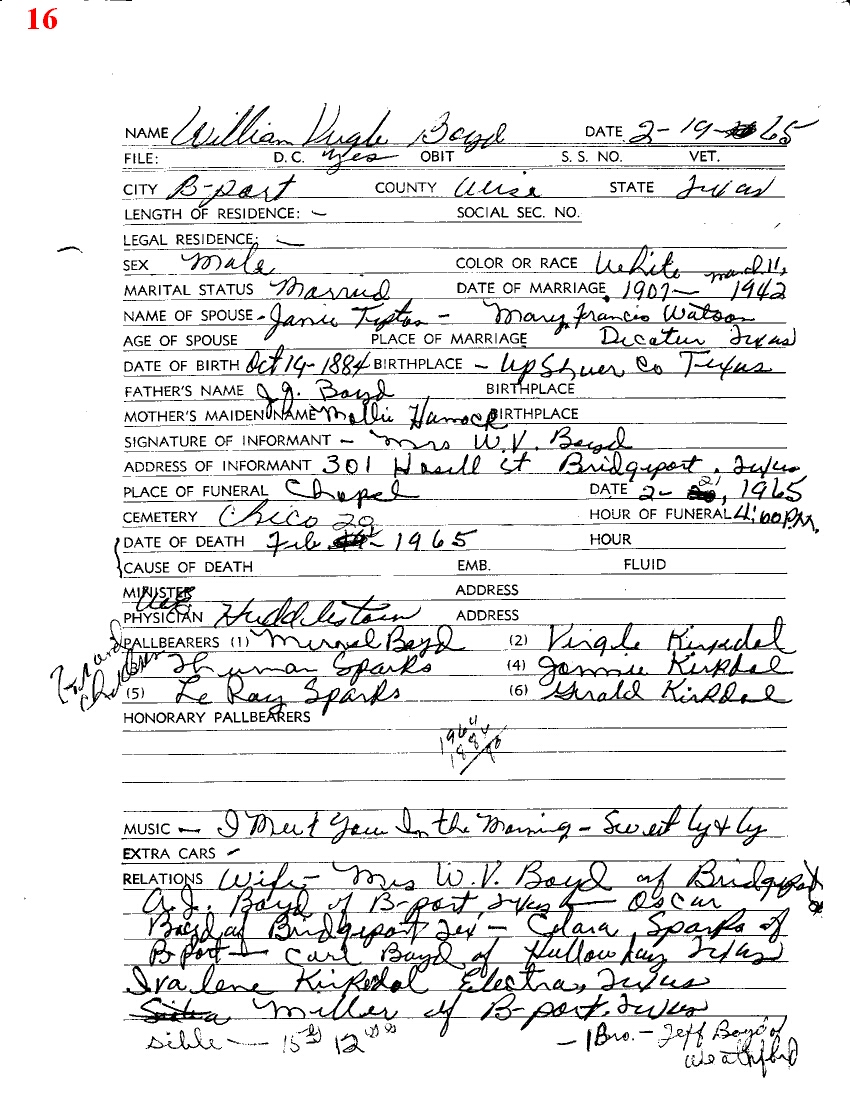 16
NAME William Virgle Boyd DATE 2-19-65
FILE: D.C. yes OBIT S. S. NO. VET.
CITY B-port COUNTY Wise STATE Texas
LENGTH OF RESIDENCE: - SOCIAL SEC. NO.
LEGAL RESIDENCE: -
SEX Male COLOR OR RACE White
MARITAL STATUS Married DATE OF MARRIAGE 1907 - March 11, 1942
NAME OF SPOUSE - Janie Tipton - Mary Francis Watson
AGE OF SPOUSE PLACE OF MARRIAGE Decatur Texas
DATE OF BIRTH Oct 14-1884 BIRTHPLACE - UpShuer Co Texas
FATHER'S NAME J.J. Boyd BIRTHPLACE
MOTHER'S MAIDEN NAME Mollie Hamock BIRTHPLACE
SIGNATURE OF INFORMANT - Mrs W.V. Boyd
ADDRESS OF INFORMANT 301 st Bridgeport, Texas
PLACE OF FUNERAL Chapel DATE 2-21, 1965
CEMETERY Chico HOUR OF FUNERAL 4:00 P.M.
DATE OF DEATH Feb 20 - 1965 HOUR
CAUSE OF DEATH EMB. FLUID
MINISTER ADDRESS
PHYSICIAN Huddlestson ADDRESS
Grand children
PALLBEARERS (1) Boyd (2) Virgle Kirkdal
(3) Thurman Sparks (4) Jommie Kirkdal
(5) Le Ray Sparks (6) Gerald Kirkdal
HONORARY PALLBEARERS
1964
1884
80
MUSIC - I Meet You In the Morning - Sweet by & by
EXTRA CARS -
RELATIONS Wife - Mrs W.V. Boyd of Bridgeport
A.J. Boyd of B-port, Texas - Oscar
Boyd of Bridgeport Tex - Clara Sparks of
B-port - Carl Boyd of Texas
Ivalene Kirkdal Electra, Texas
Miller of B-port, Texas
- 1 Bro. - Jeff Boyd of
sible - 15 12
Weatherford